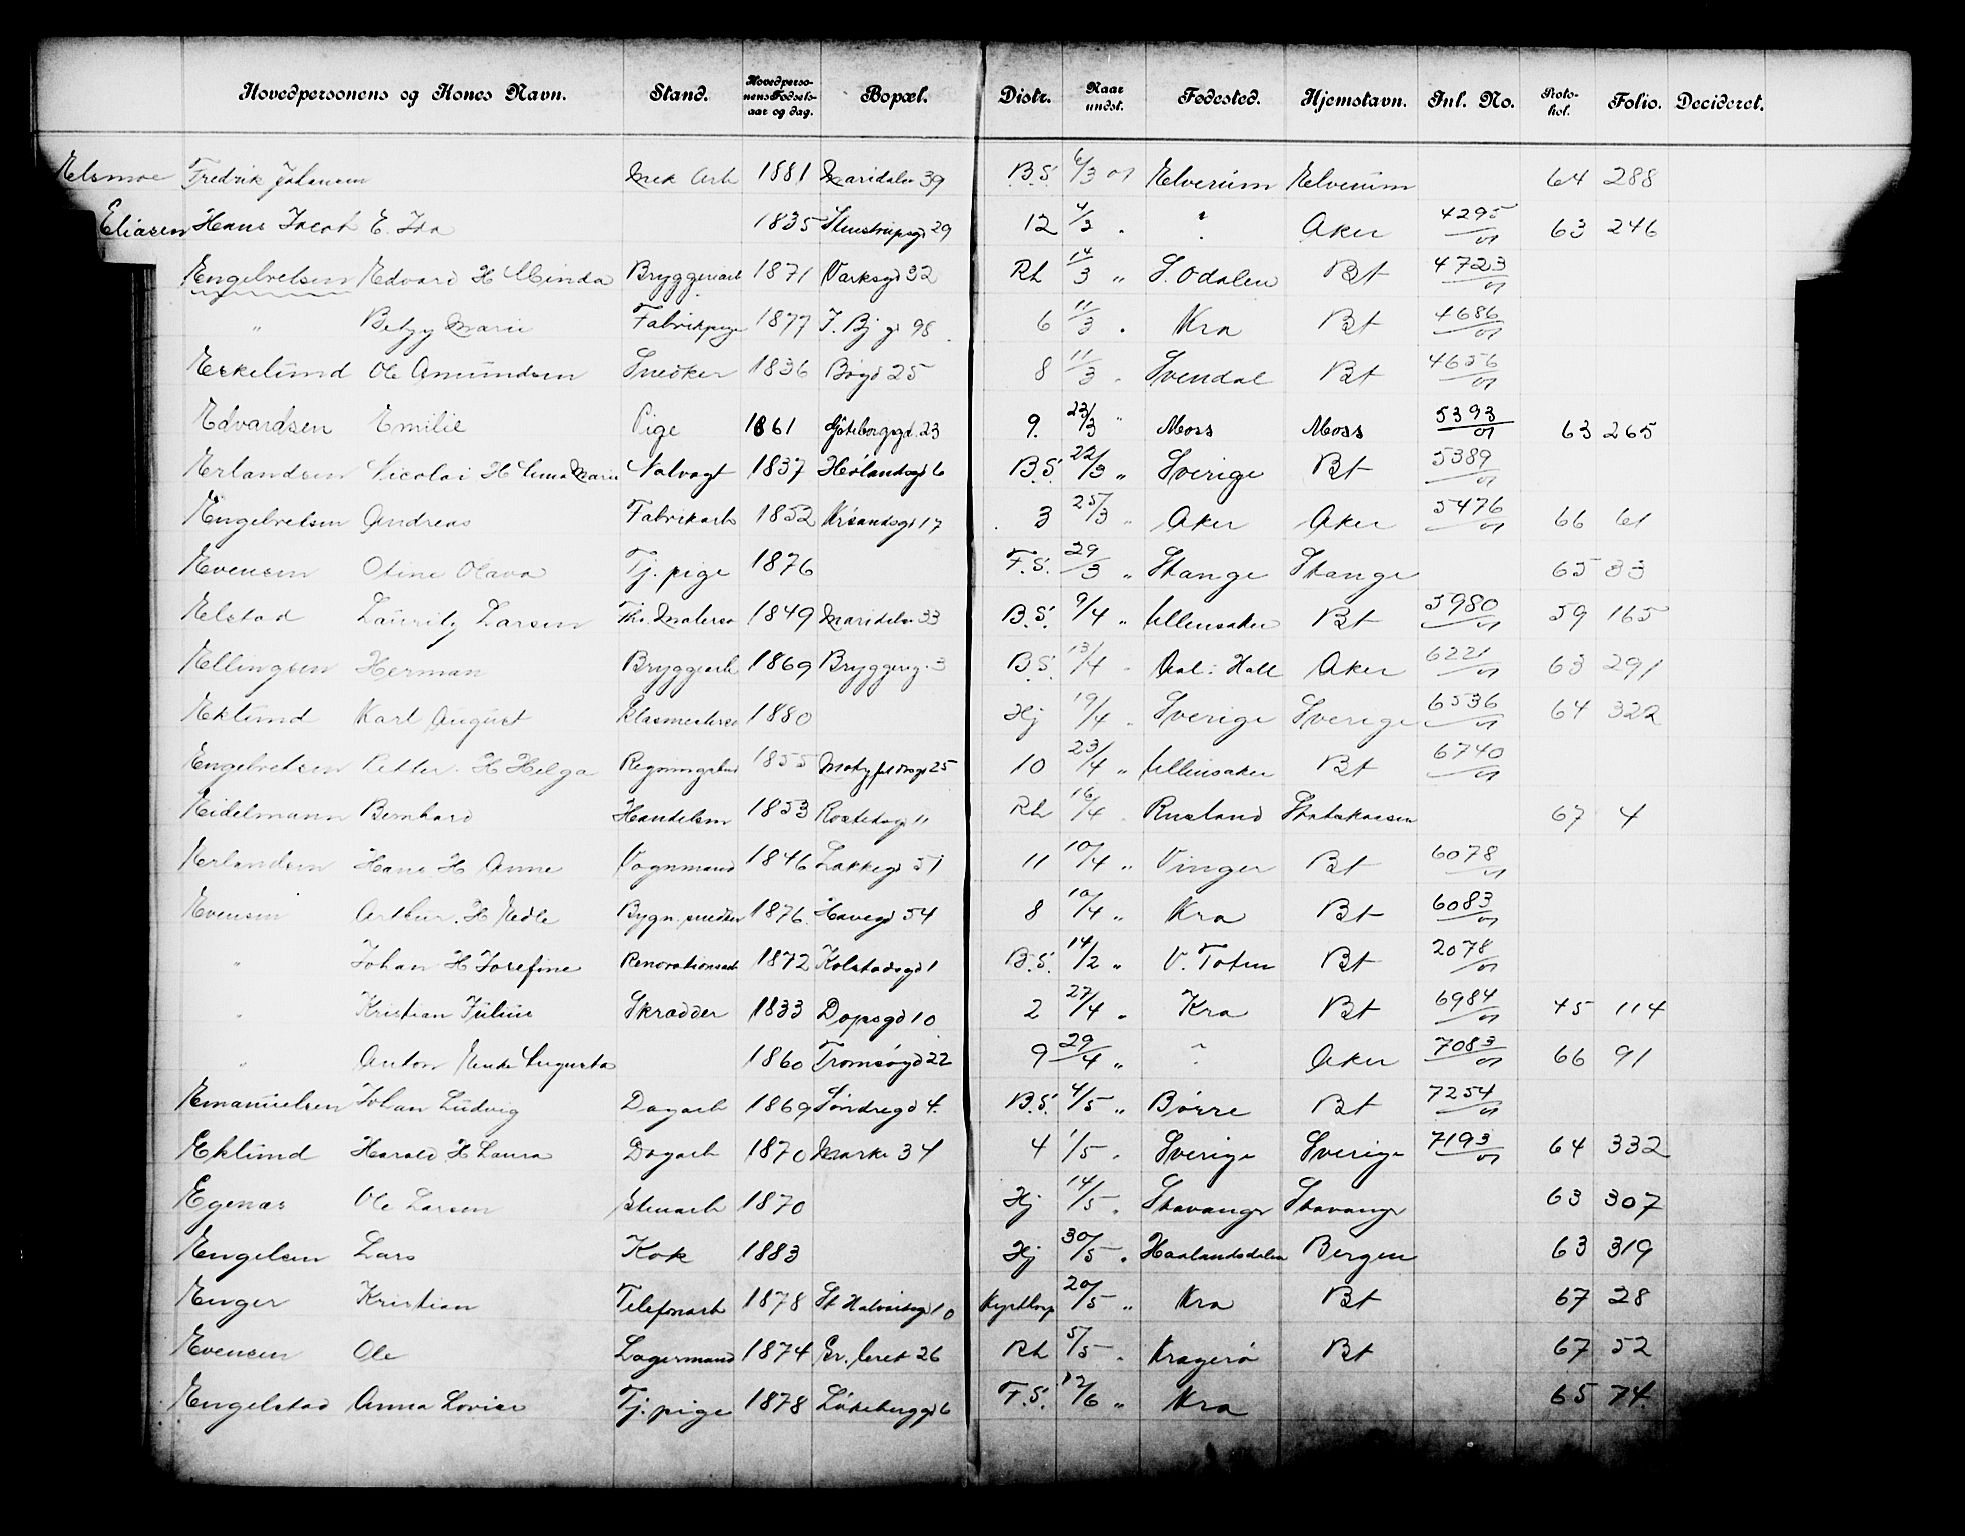 Hovedpersonens og Kones Navn. Stand. Hovedpersonens Fødselsaar og dag. Bopæl. Distr. Naar undst. Fødested. Hjemstavn. Inl. No. Protokol. Folio. Decideret.
Elsmoe Fredrik Johansen Mek Arb 1881 Maridalsv 39 B.S. 6/3 01 Elverum Elverum 64 288
Eliasen Hans Jacob E. Ida 1835 Stenstrupsgd 29 12 4/3 " ? Aker 4295/01 63 246
Engebretsen Edvard H Minda Bryggeriarb 1871 Verksgd 32 Rh 14/3 " S. Odalen Bt 4723/01
" Betzy Marie Fabrikpige 1877 T. Bj gd 98 6 11/3 " Kra Bt 4686/01
Eskelund Ole Amundsen Snedker 1836 Bogd 25 8 11/3 " Svendal Bt 4656/01
Edvardsen Emilie Pige 1861 Gøteborggd. 23 9. 23/3 " Moss Moss 5393/01 63 265
Erlandsen Nicolai H Anna Marie Nalvagt 1837 Hølandsgd 6 B.S. 22/3 " Sverige Bt 5389/01
Engebretsen Andreas Fabrikarb 1852 Krsandsgd 17 3 25/3 " Aker Aker 5476/01 66 61
Evensen Otine Olava Tj. pige 1876 F.S. 29/3 " Stange Stange 65 33
Elstad Lauritz Larsen Fhv. Malersv 1849 Maridalsv 33 B.S. 9/4 " Ullensaker Bt 5980/01 59 165
Ellingsen Herman Bryggearb 1869 Bryggerig. 3 B.S. 13/4 " Aal: Hall Aker 6221/01 63 291
Eklund Karl August Glasmestersv 1880 Hj 19/4 " Sverige Sverige 6536/01 64 322
Engebretsen Petter. H Helga Regningsbud 1855 Motzfeldtsgd 25 10 23/4 " Ullensaker Bt 6740/01
Eidelmann Bernhard Handelsm 1853 Rostedsgd 11 Rh 16/4 " Rusland Statskassen 67 4
Erlandsen Hans H Anne Vognmand 1846 Lakkegd 51 11 10/4 " Vinger Bt 6078/01
Evensen Arthur. H Nedle Bygn. snedker 1876. Havegd 54 8 10/4 " Kra Bt 6083/01
" Johan H Josefine Renovationsarb 1872 Kolstadgd 1 B.S. 14/2 " V. Toten Bt 2078/01
" Kristian Julius Skrædder 1833 Dopsgd 10 2 27/4 " Kra Bt 6984/01 45 114
" Anton Enke Augusta 1860 Tromsøgd 22 9 29/4 " ? Aker 7083/01 66 91
Emanuelsen Johan Ludvig Dagarb 1869 Søndregd 4. B.S. 4/5 " Børre Bt 7254/01
Eklund Harald H Laura Dagarb 1870 Markv 34 4 1/5 " Sverige Sverige 7193/01 64 332
Egenæs Ole Larsen Stenarb 1870 Hj 14/5 " Stavanger Stavanger 63 307
Engelsen Lars Kok 1883 Hj 30/5 " Haalandsdalen Bergen 63 319
Enger Kristian Telefonarb 1878 St Halvardsgd 10 20/5 " Kra Bt 67 28
Evensen Ole Lagermand 1874 Gr. leret 26 Rh 5/5 " Kragerø Bt 67 52
Engelstad Anna Lovise Tj. pige 1878 Løkeberggd 6 F.S. 12/6 " Kra 65 74.